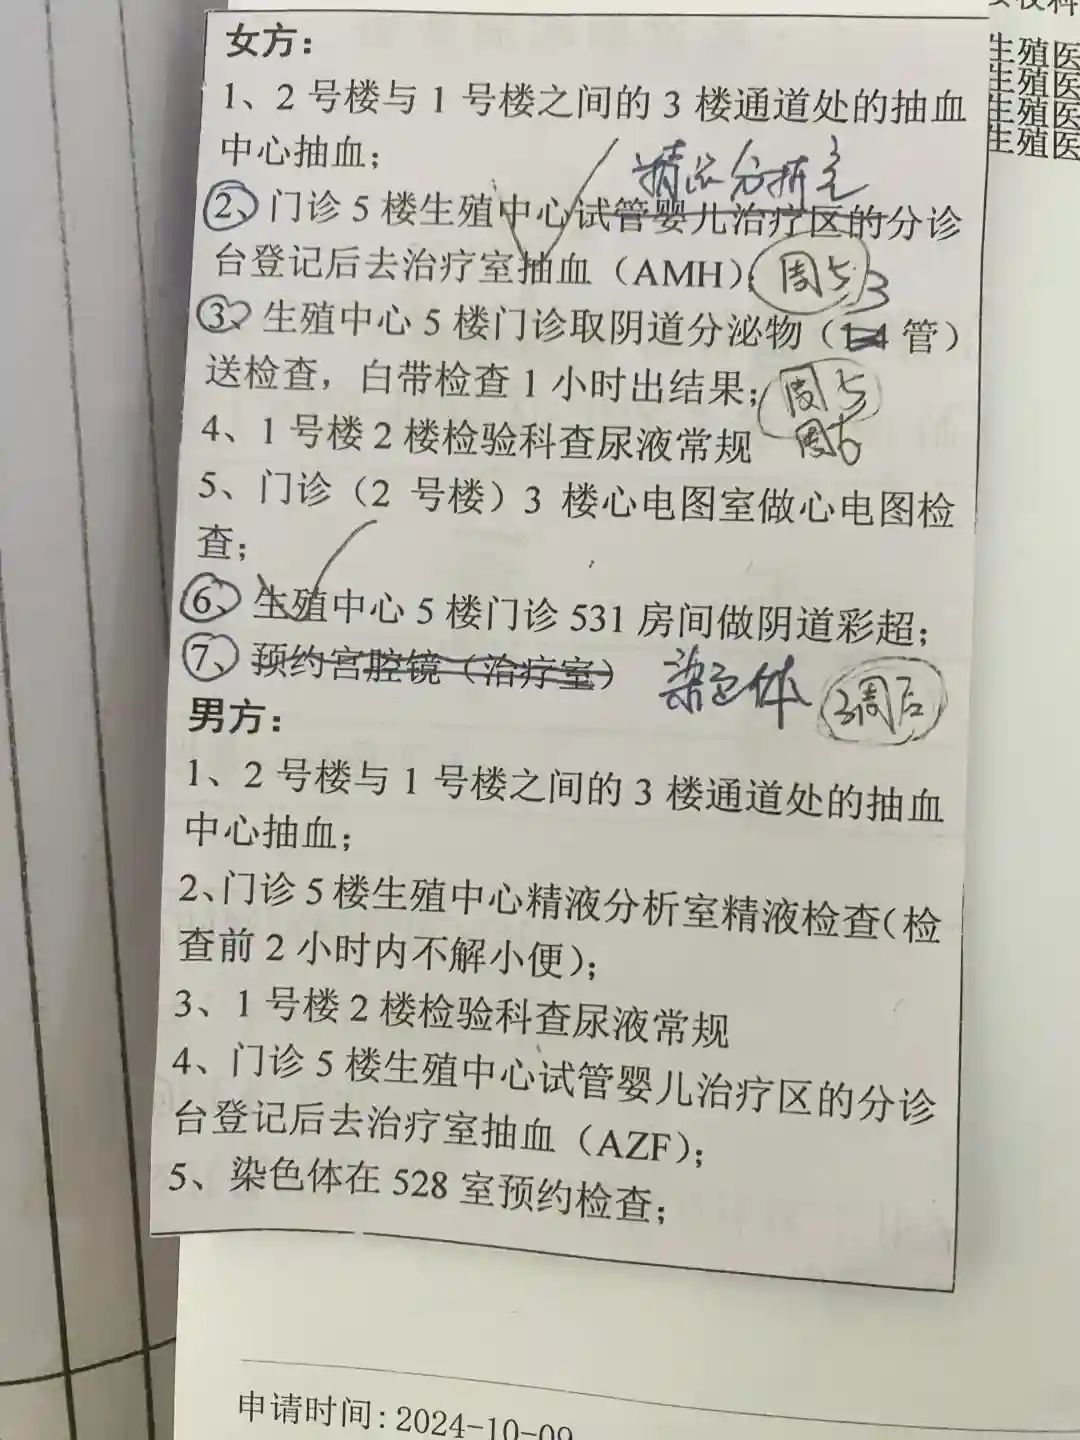 女方：
1、2 号楼与 1 号楼之间的 3 楼通道处的抽血
中心抽血；
精液分析室
2、门诊 5 楼生殖中心试管婴儿治疗区的分诊
台登记后去治疗室抽血（AMH）；周5 3
3、生殖中心 5 楼门诊取阴道分泌物（管）
送检查，白带检查 1 小时出结果；周5
周6
4、1 号楼 2 楼检验科查尿液常规
5、门诊（2 号楼）3 楼心电图室做心电图检
查；
6、生殖中心 5 楼门诊 531 房间做阴道彩超；
7、预约宫腔镜（治疗室） 染色体 3周后
男方：
1、2 号楼与 1 号楼之间的 3 楼通道处的抽血
中心抽血；
2、门诊 5 楼生殖中心精液分析室精液检查（检
查前 2 小时内不解小便）；
3、1 号楼 2 楼检验科查尿液常规
4、门诊 5 楼生殖中心试管婴儿治疗区的分诊
台登记后去治疗室抽血（AZF）；
5、染色体在 528 室预约检查；
申请时间：2024-10-09
生殖医
生殖医
生殖医
生殖医